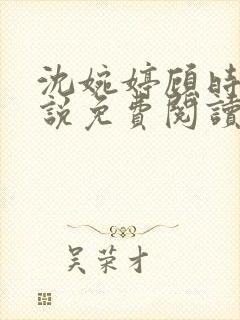 沈婉婷顾时
說免費閱讀
吴荣才